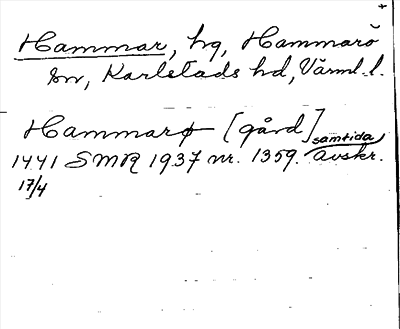 Hammar, hg, Hammarö
sn, Karlstads hd, Värml. l.
Hammarø [gård] samtida
1441 SMR 1937 nr. 1359. avskr.
17/4